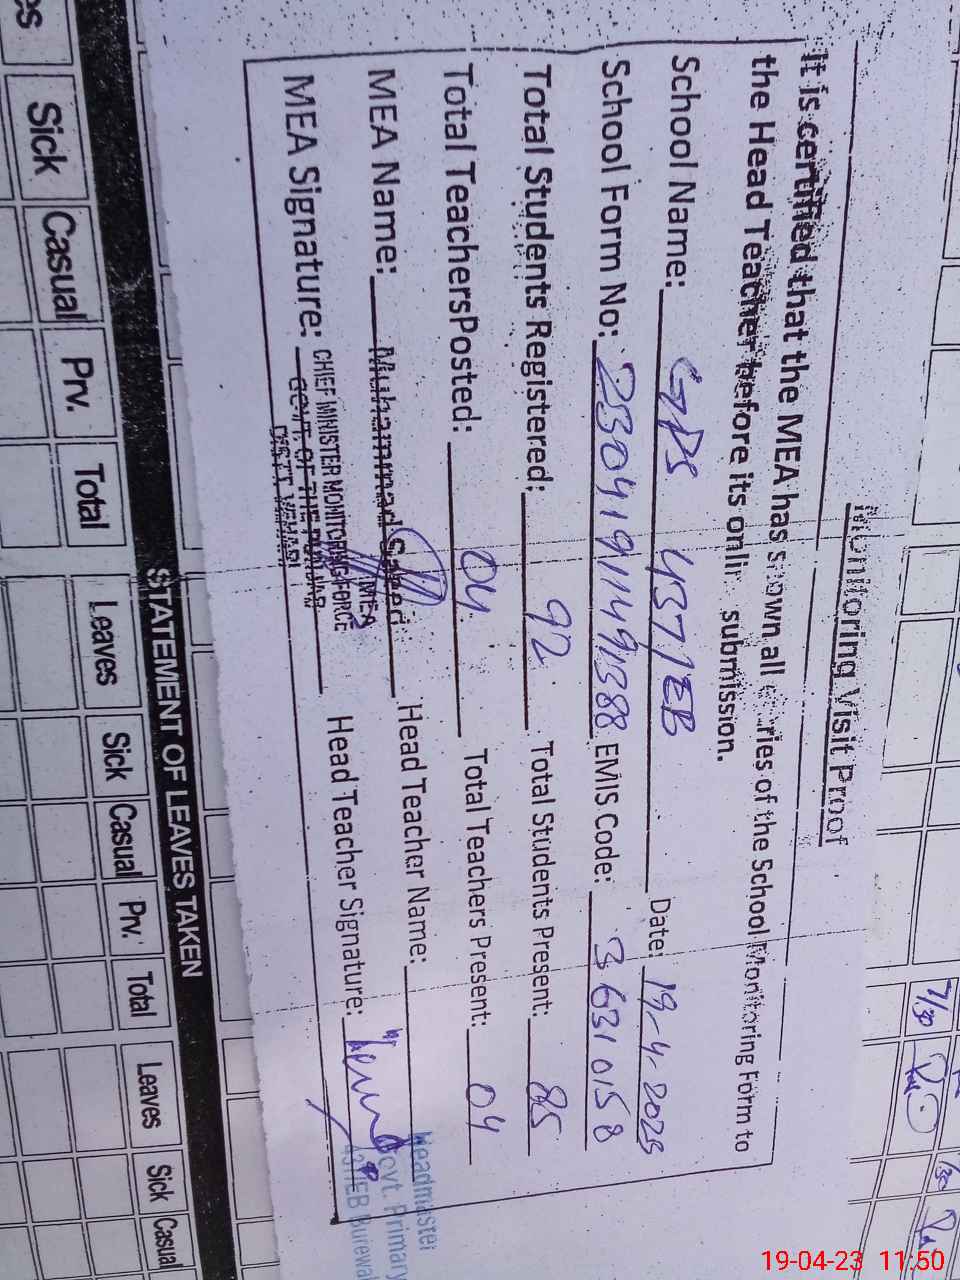 Monitoring Visit Proof
It is certified that the MEA has shown all entries of the School Monitoring Form to
the Head Teacher before its online submission.
School Name: GPS 437/EB Date: 19-4-2023
School Form No: EMIS Code: 36310158
Total Students Registered: 92 Total Students Present: 85
Total TeachersPosted: 04 Total Teachers Present: 04
MEA Name: Muhammad Saeed Head Teacher Name:
MEA
MEA Signature: CHIEF MINISTER MONITORING FORCE Head Teacher Signature:
GOVT. OF THE PUNJAB
DISTT. VEHARI
Headmaster
Govt. Primary
437/EB Burewal
STATEMENT OF LEAVES TAKEN
Sick Casual Prv. Total Leaves Sick Casual Prv. Total Leaves Sick Casual
7/30
19-04-23 11:50